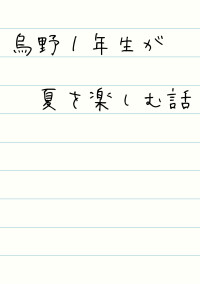 烏野1年生が
夏を楽しむ話